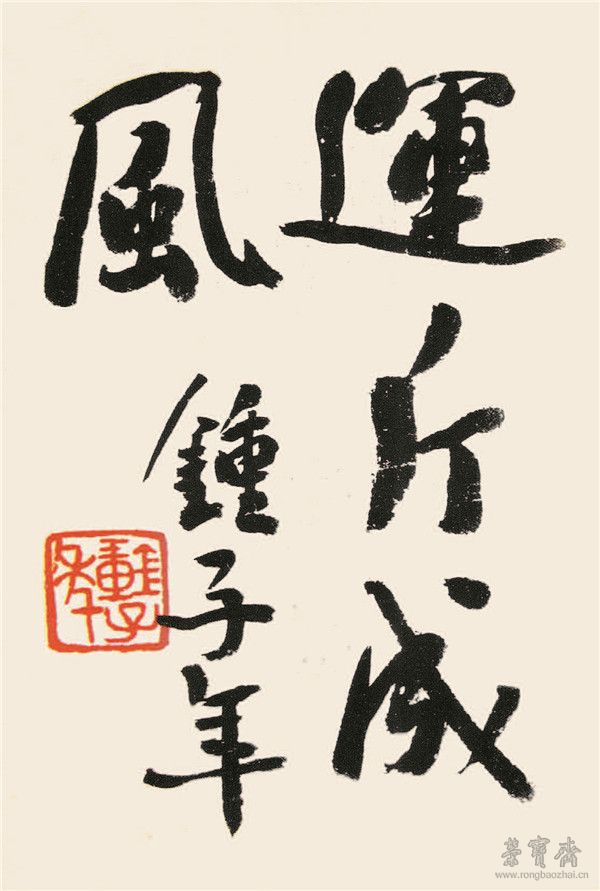 運斤成
風
鍾子年
榮寶齋
www.rongbaozhai.cn